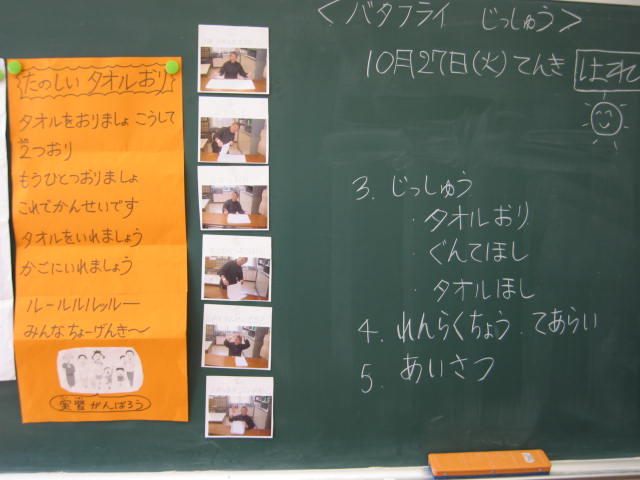 たのしい タオルおり
タオルをおりましょ こうして
2つおり
もうひとつおりましょ
これでかんせいです
タオルをいれましょう
かごにいれましょう
ルールルルッルー
みんなちょーげんき〜
実習がんばろう
＜バタフライ じっしゅう＞
10月27日(火) てんき はれ
3. じっしゅう
・タオルおり
・ぐんてほし
・タオルほし
4. れんらくちょう・てあらい
5. あいさつ